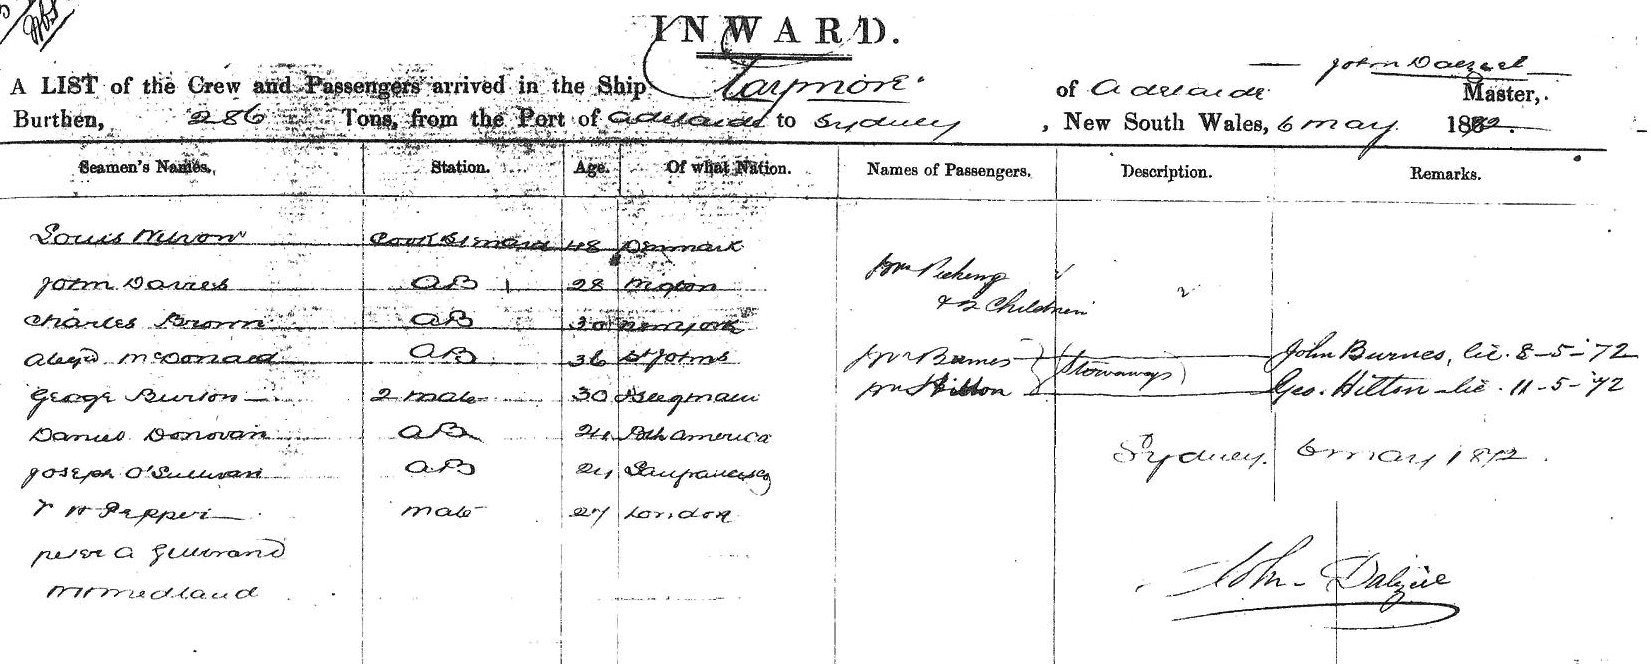 INWARD.
John Dalziel
A LIST of the Crew and Passengers arrived in the Ship of Adelaide Master,
Burthen, 286 Tons, from the Port of Adelaide to Sydney, New South Wales, 6 May 1872.
Seamen's Names. Station. Age. Of what Nation. Names of Passengers. Description. Remarks.
Louis 48 Denmark
John Davies AB 28
& 2 Children
Charles Brown AB 30 New York
McDonald AB 36 St Johns Stowaways John Burnes, lic. 8-5-72
George Burton 2 mate 30 Hilton Geo. Hilton lic. 11-5-72
Daniel Donovan AB 24 America
Sydney. 6 May 1872.
Joseph O'Sullivan AB 24 San francisco
Pepper mate 27 London
Peter A
John Dalziel
Medland